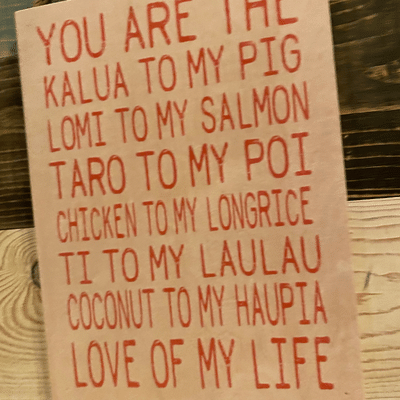 YOU ARE THE
KALUA TO MY PIG
LOMI TO MY SALMON
TARO TO MY POI
CHICKEN TO MY LONGRICE
TI TO MY LAULAU
COCONUT TO MY HAUPIA
LOVE OF MY LIFE